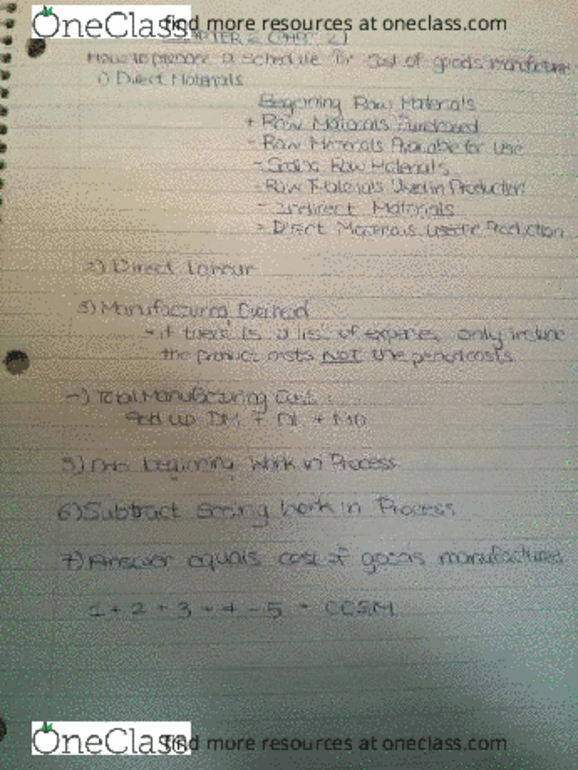 OneClass find more resources at oneclass.com
CHAPTER 2 (
How to prepare a Schedule for Cost of goods manufacture
1) Direct Materials
Beginning Raw Materials
+ Raw Materials Purchased
= Raw Materials Available for Use
- Ending Raw Materials
= Raw Materials Used in Production
- Indirect Materials
= Direct Materials used in Production
2) Direct Labour
3) Manufacturing Overhead
- if there is a list of expenses, only include
the product costs NOT the period costs
4) Total Manufacturing Cost:
Add up DM + DL + MO
5) Add beginning Work in Process
6) Subtract ending Work in Process
7) Answer equals cost of goods manufactured
1 + 2 + 3 + 4 - 5 = COGM
OneClass find more resources at oneclass.com